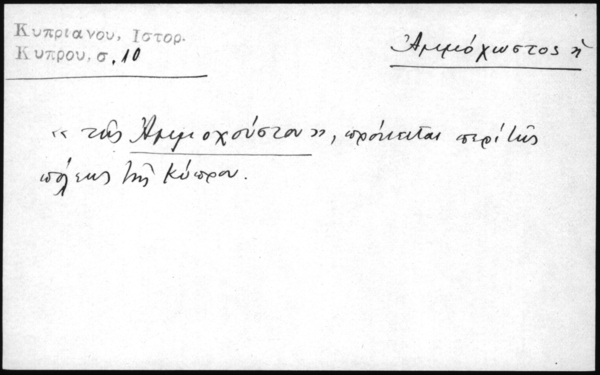 Κυπριανου, Ιστορ.
Κυπρου, σ. 10
Ἀμμόχωστος ἡ
« τῆς Ἀμμοχούστου », πρόκειται περὶ τῆς
πόλεως τῆς Κύπρου.